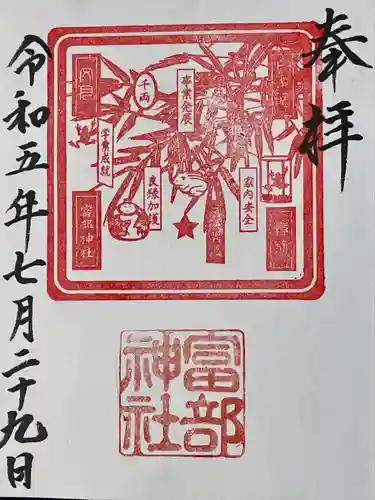 奉拝
事業発展
千両
学業成就
良縁加護
家内安全
富部神社
富部神社
令和五年七月二十九日